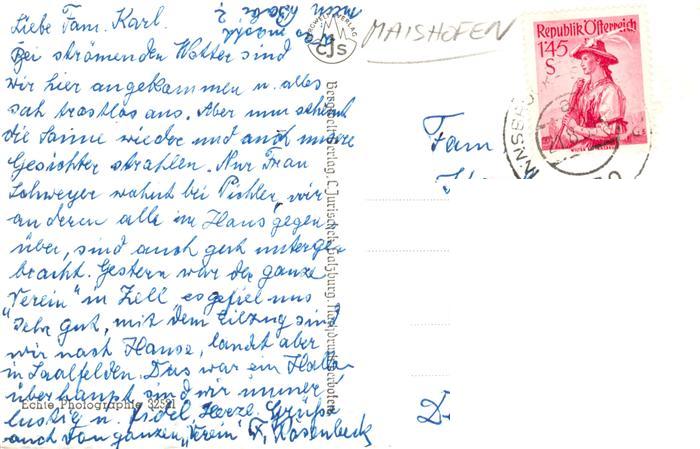 Liebe Fam. Karl.
Bei strömenden Wetter sind
wir hier angekommen u. alles
sah trostlos aus. Aber nun scheint
die Sonne wieder und auch unsere
Gesichter strahlen. Nur Frau
Lohweyer wohnt bei Pichler, wir
anderen alle im Haus gegen-
über, sind auch gut unterge-
bracht. Gestern war der ganze
"Verein" in Zell es gefiel uns
sehr gut, mit dem Eilzug sind
wir nach Hause, landet aber
in Saalfelden. Das war ein Hallo
überhaupt sind wir immer
lustig u. fidel Herzl. Grüße
auch vom ganzen "Verein" F. Rosenbeck
Echte Photographie
BERGWELT-VERLAG
CJS
Bergwelt-Verlag, C. Jurischek, Salzburg, Nachdruck verboten
MAISHOFEN
Republik Österreich
1'45
S
Fam
D